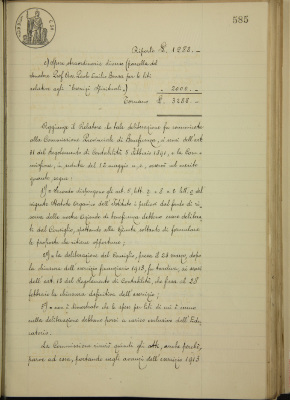 585
Riporto L. 1288.-
c) Spese straordinarie diverse (parcella del
Senatore Prof. Avv. Paolo Emilio Bensa per le liti
relative agli "Esercizi Spirituali") " 2000.-
Tornano L. 3288.-
Aggiunge il Relatore che tale deliberazione fu comunicata
alla Commissione Provinciale di Beneficenza, ai sensi dell'art.
31 del Regolamento di Contabilità 5 Febbraio 1891, e la Com-
missione, in seduta del 12 maggio u.s., osservò nel merito
quanto segue:
1°= Secondo dispongono gli art. 5 lett. g.
vigente Statuto Organico dell'Istituto i prelievi dal fondo di ri-
serva della nostra Azienda di beneficenza debbono essere delibera-
ti dal Consiglio, spettando alla Giunta soltanto di formulare
le proposte che ritiene opportune;
2°= la deliberazione del Consiglio, presa il 28 marzo, dopo
la chiusura dell'esercizio finanziario 1913, fu tardiva, ai sensi
dell'art. 18 del Regolamento di Contabilità, che fissa al 28
febbraio la chiusura definitiva dell'esercizio;
3°= non è dimostrato che le spese per liti di cui è cenno
nella deliberazione debbano farsi a carico esclusivo dell'Ered-

La Commissione rinviò quindi gli atti, anche perchè,
parve ad essa, portando negli avanzi dell'esercizio 1913